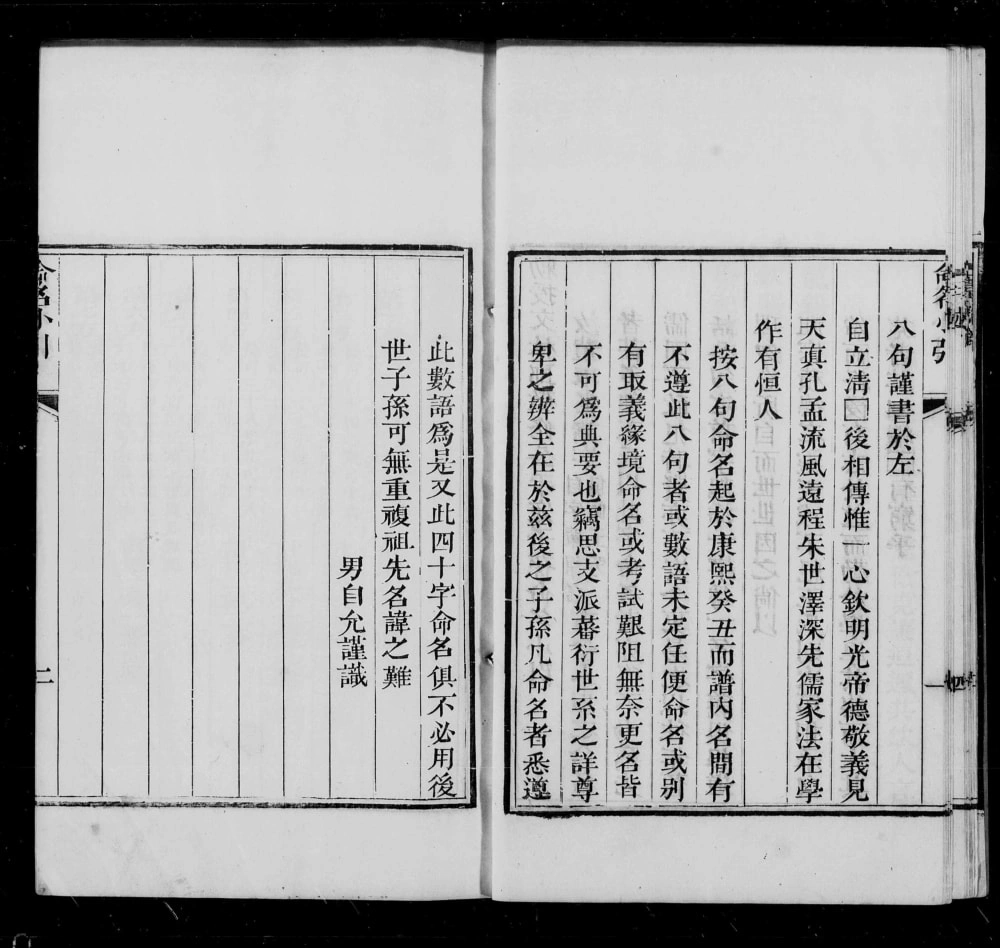 八句謹書於左
自立淸囗後相傳惟一心欽明光帝德敬義見
天眞孔孟流風遠程朱世澤深先儒家法在學
作有恒人
按八句命名起於康熙癸丑而譜內名間有
不遵此八句者或數語未定任便命名或別
有取義緣境命名或考試艱阻無奈更名皆
不可爲典要也竊思支派蕃衍世系之詳尊
卑之辨全在於兹後之子孫凡命名者悉遵
命名小引
一
此數語爲是又此四十字命名俱不必用後
世子孫可無重複祖先名諱之難
男自允謹識
命名小引
二